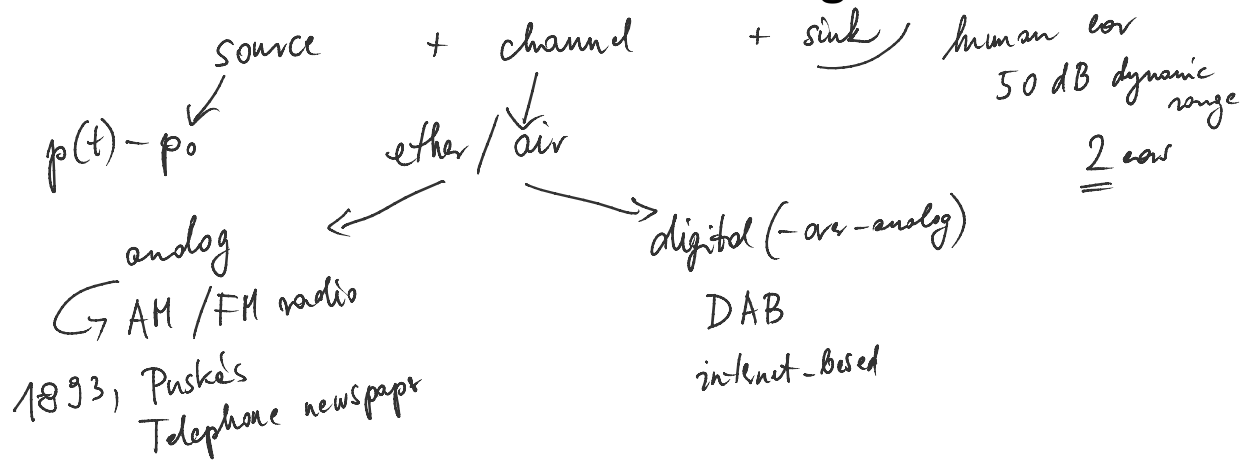 source + channel + sink human ear
50 dB dynamic
range
2 ears
p(t) - p₀
ether / air
analog
AM / FM radio
1893, Puskás
Telephone newspapr
digital (-over-analog)
DAB
internet-based